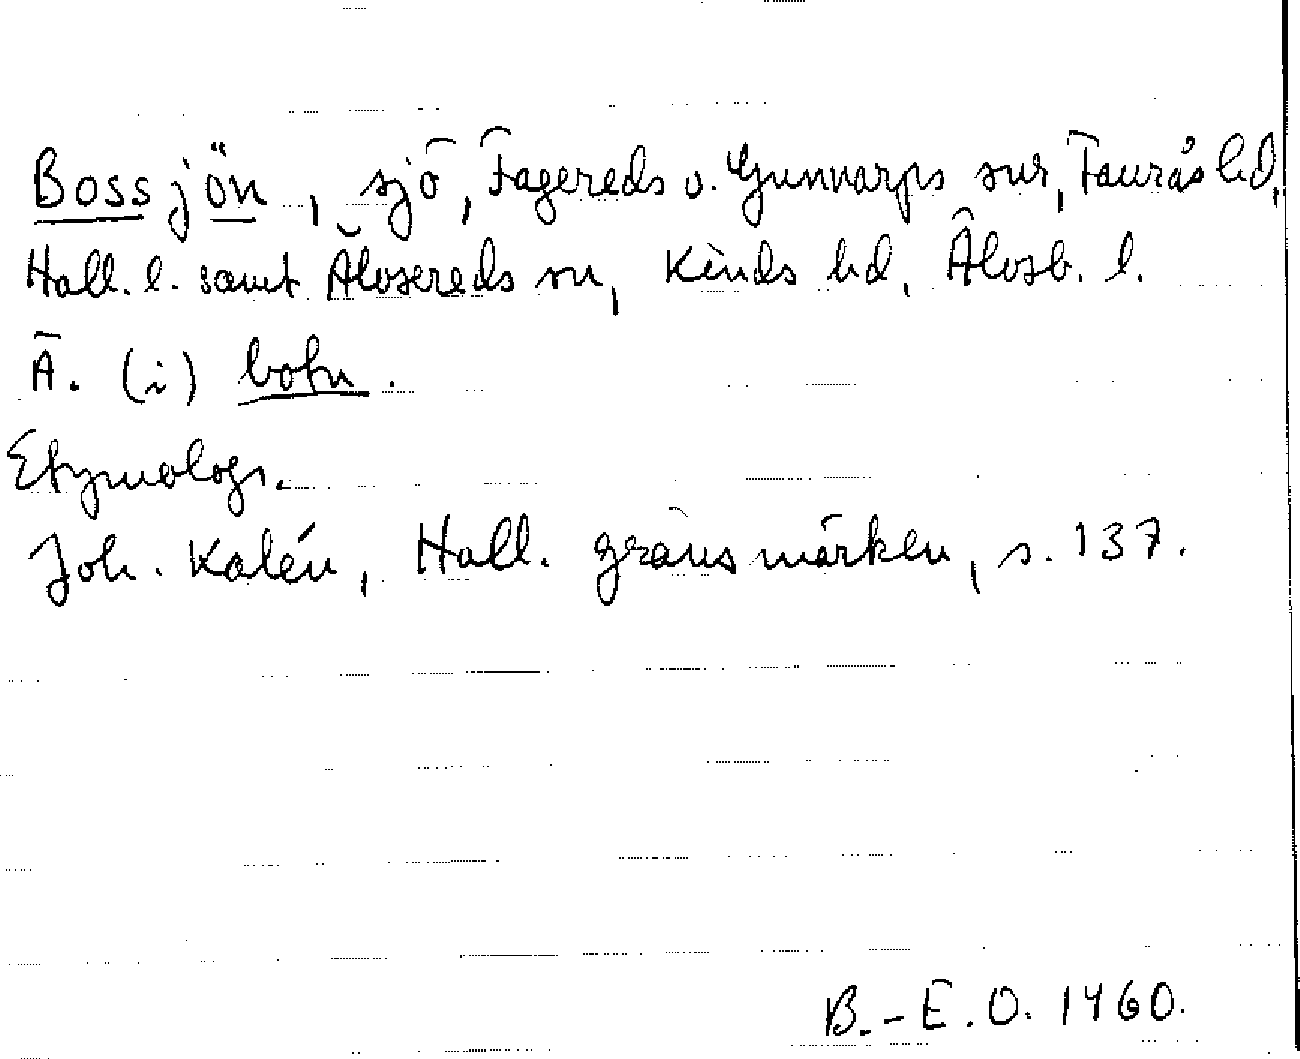 Bossjön, sjö, Fagereds o. Gunnarps snr, Faurås hd,
Hall. l. samt Älvsereds sn, Kinds hd, Älvsb. l.
Ä. (i) botn.
Etymologi.
Joh. Kalén, Hall. gränsmärken, s. 137.
B.-E.O. 1960.